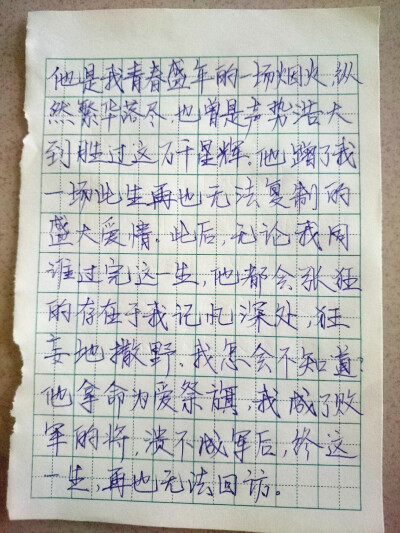 他是我青春盛年的一场烟火,纵
然繁华落尽,也曾是声势浩大
到胜过这万千星辉。他赠了我
一场此生再也无法复制的
盛大爱情。此后,无论我同
谁过完这一生,他都会张狂
的存在于我记忆深处,狂
妄地撒野。我怎会不知道,
他拿命为爱祭旗,我成了败
军的将,溃不成军后,终这
一生,再也无法回访。